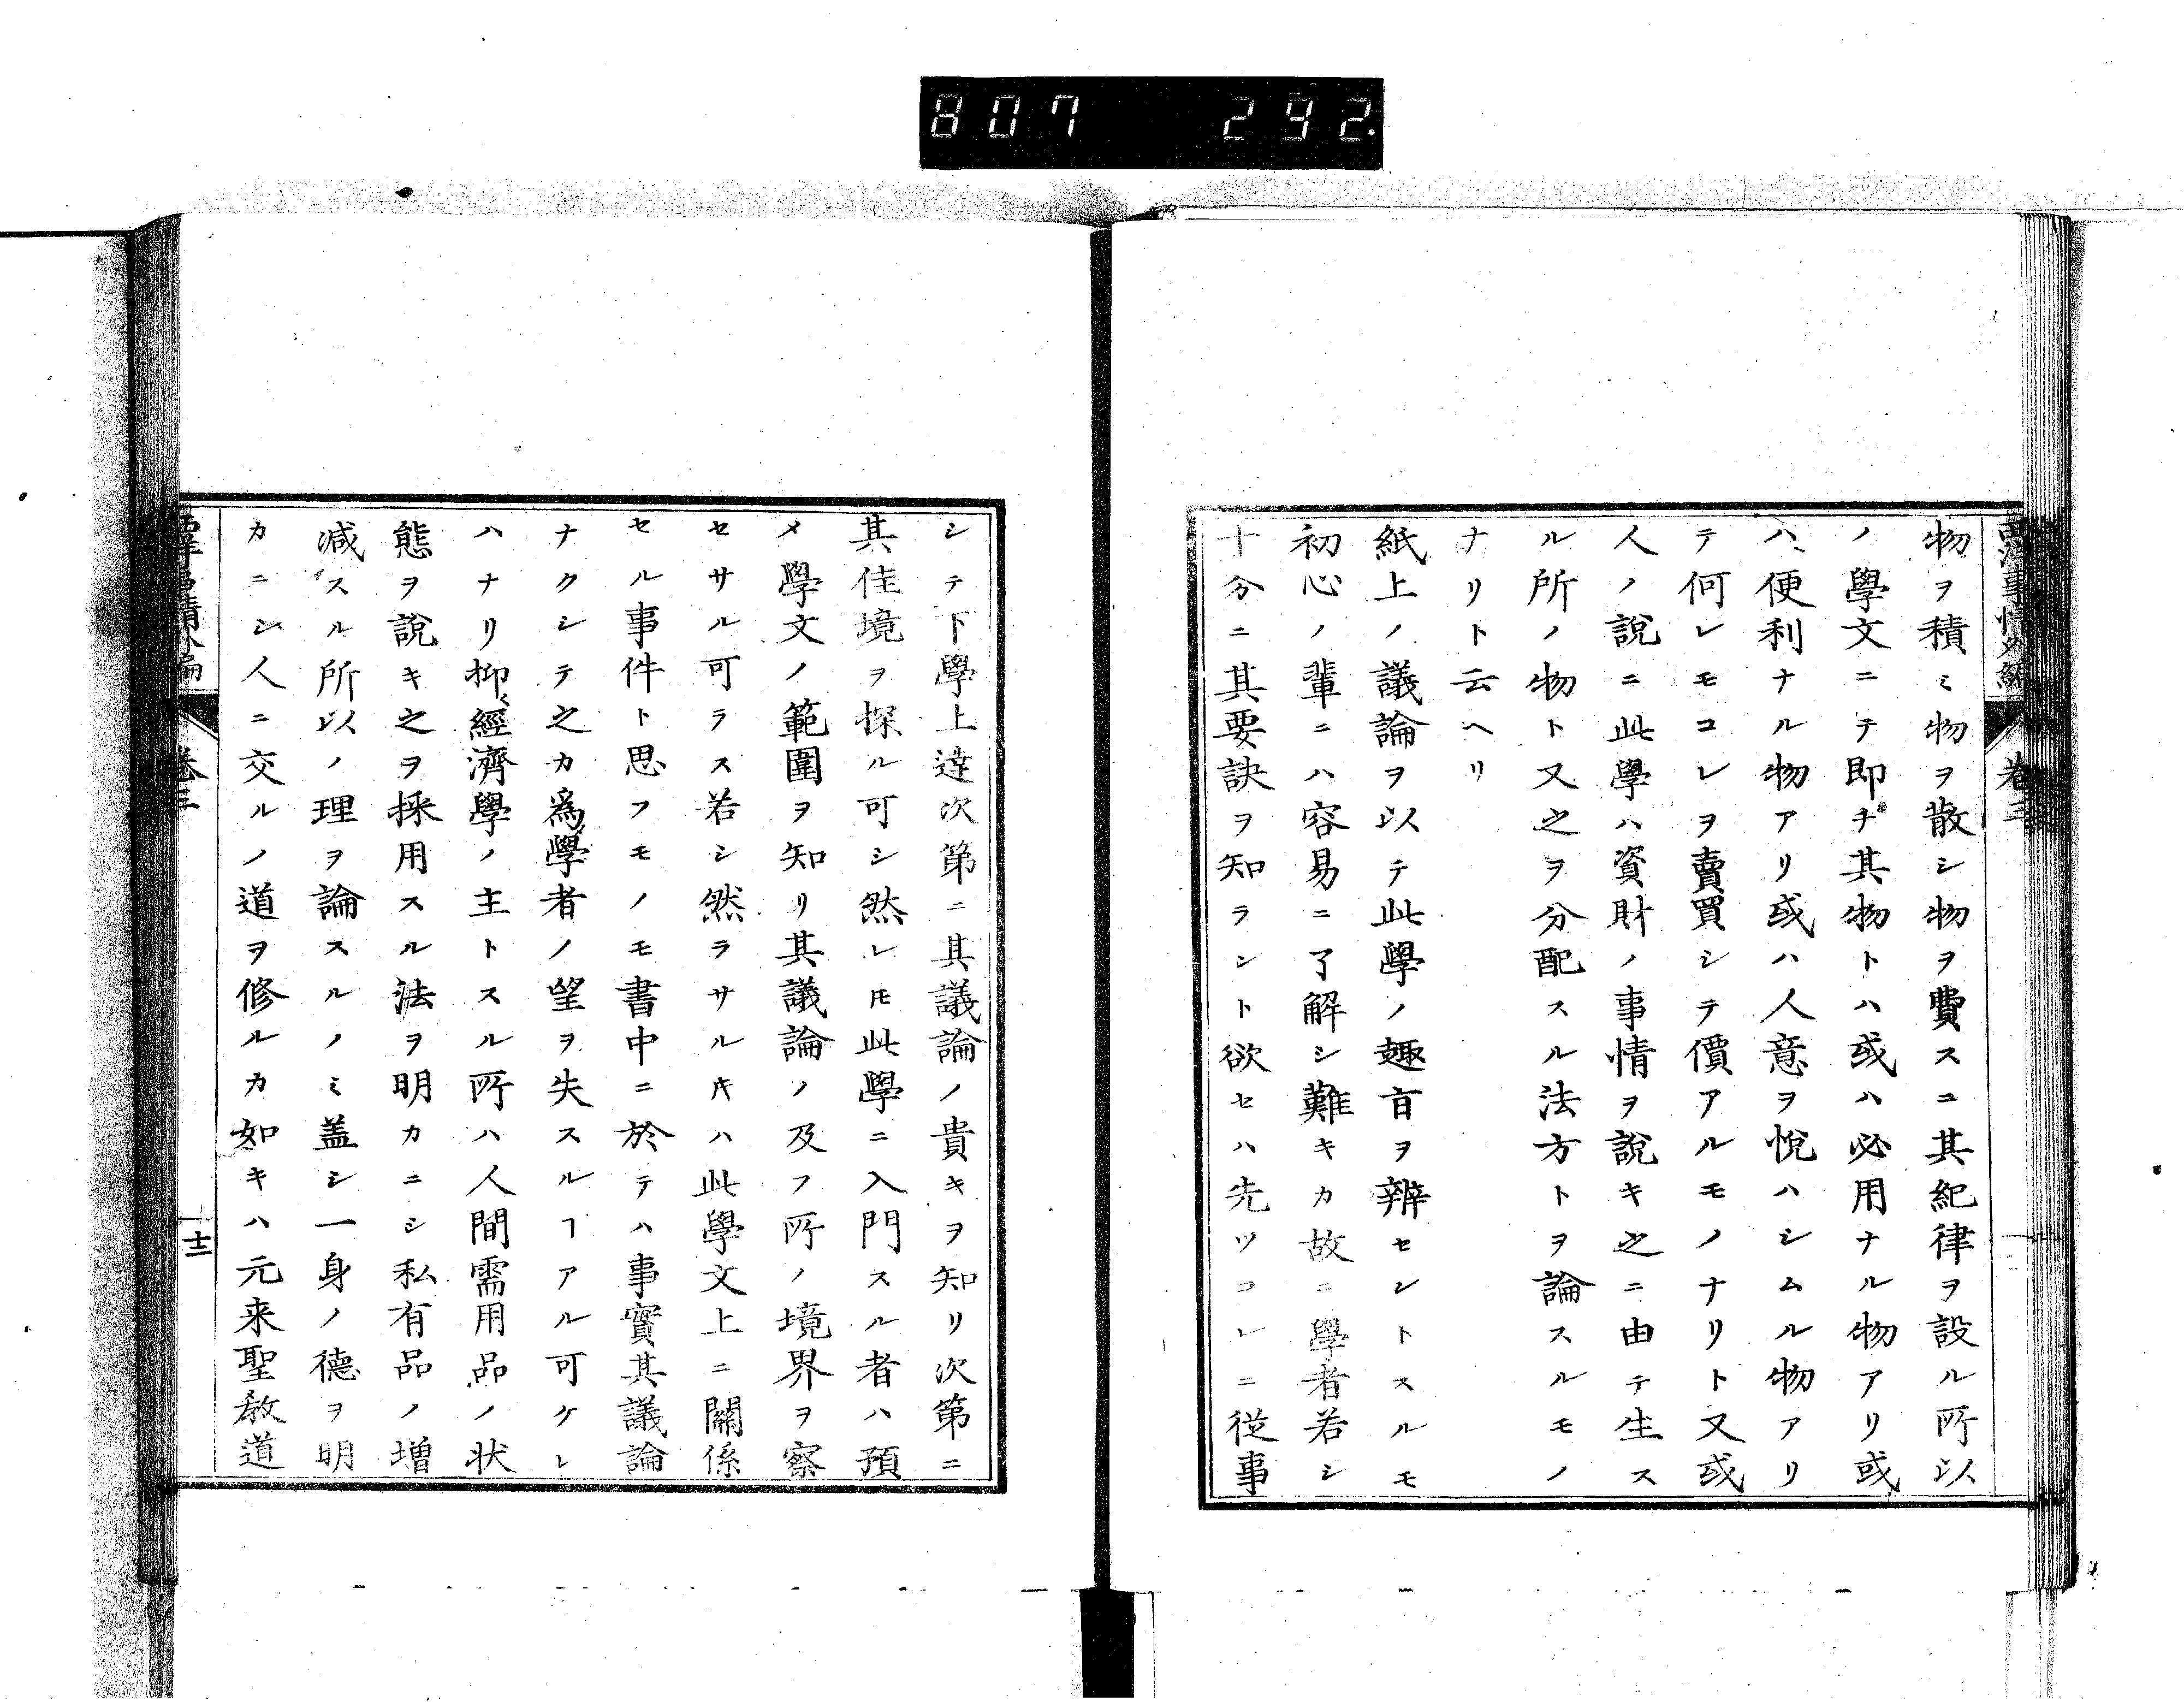 807 292.
西洋事情外編 卷三
物ヲ積ミ物ヲ散シ物ヲ費スニ其紀律ヲ設ル所以
ノ學文ニテ即チ其物トハ或ハ必用ナル物アリ或
ハ便利ナル物アリ或ハ人意ヲ悅ハシムル物アリ
テ何レモコレヲ賣買シテ價アルモノナリト又或
人ノ說ニ此學ハ資財ノ事情ヲ說キ之ニ由テ生ス
ル所ノ物ト又之ヲ分配スル法方トヲ論スルモノ
ナリト云ヘリ
紙上ノ議論ヲ以テ此學ノ趣旨ヲ辨セントスルモ
初心ノ輩ニハ容易ニ了解シ難キカ故ニ學者若シ
十分ニ其要訣ヲ知ラント欲セハ先ツコレニ從事
シテ下學上達次第ニ其議論ノ貴キヲ知リ次第ニ
其佳境ヲ探ル可シ然レ𪜈此學ニ入門スル者ハ預
メ學文ノ範圍ヲ知リ其議論ノ及フ所ノ境界ヲ察
セサル可ラス若シ然ラサルキハ此學文上ニ關係
セル事件ト思フモノモ書中ニ於テハ事實其議論
ナクシテ之カ爲學者ノ望ヲ失スルヿアル可ケレ
ハナリ抑〻經濟學ノ主トスル所ハ人間需用品ノ狀
態ヲ說キ之ヲ採用スル法ヲ明カニシ私有品ノ增
減スル所以ノ理ヲ論スルノミ盖シ一身ノ德ヲ明
カニシ人ニ交ルノ道ヲ修ルカ如キハ元来聖敎道
西洋事情外編 卷三 十二